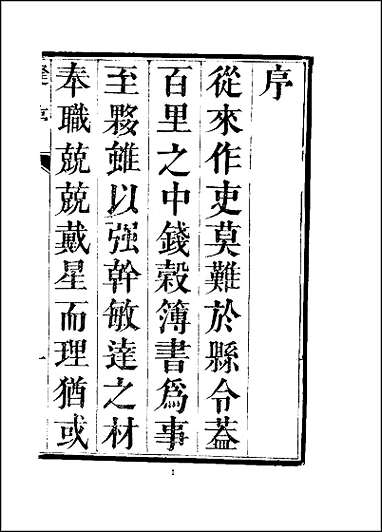 序
從來作吏莫難於縣令葢
百里之中錢穀簿書爲事
至夥雖以强幹敏達之材
奉職兢兢戴星而理猶或